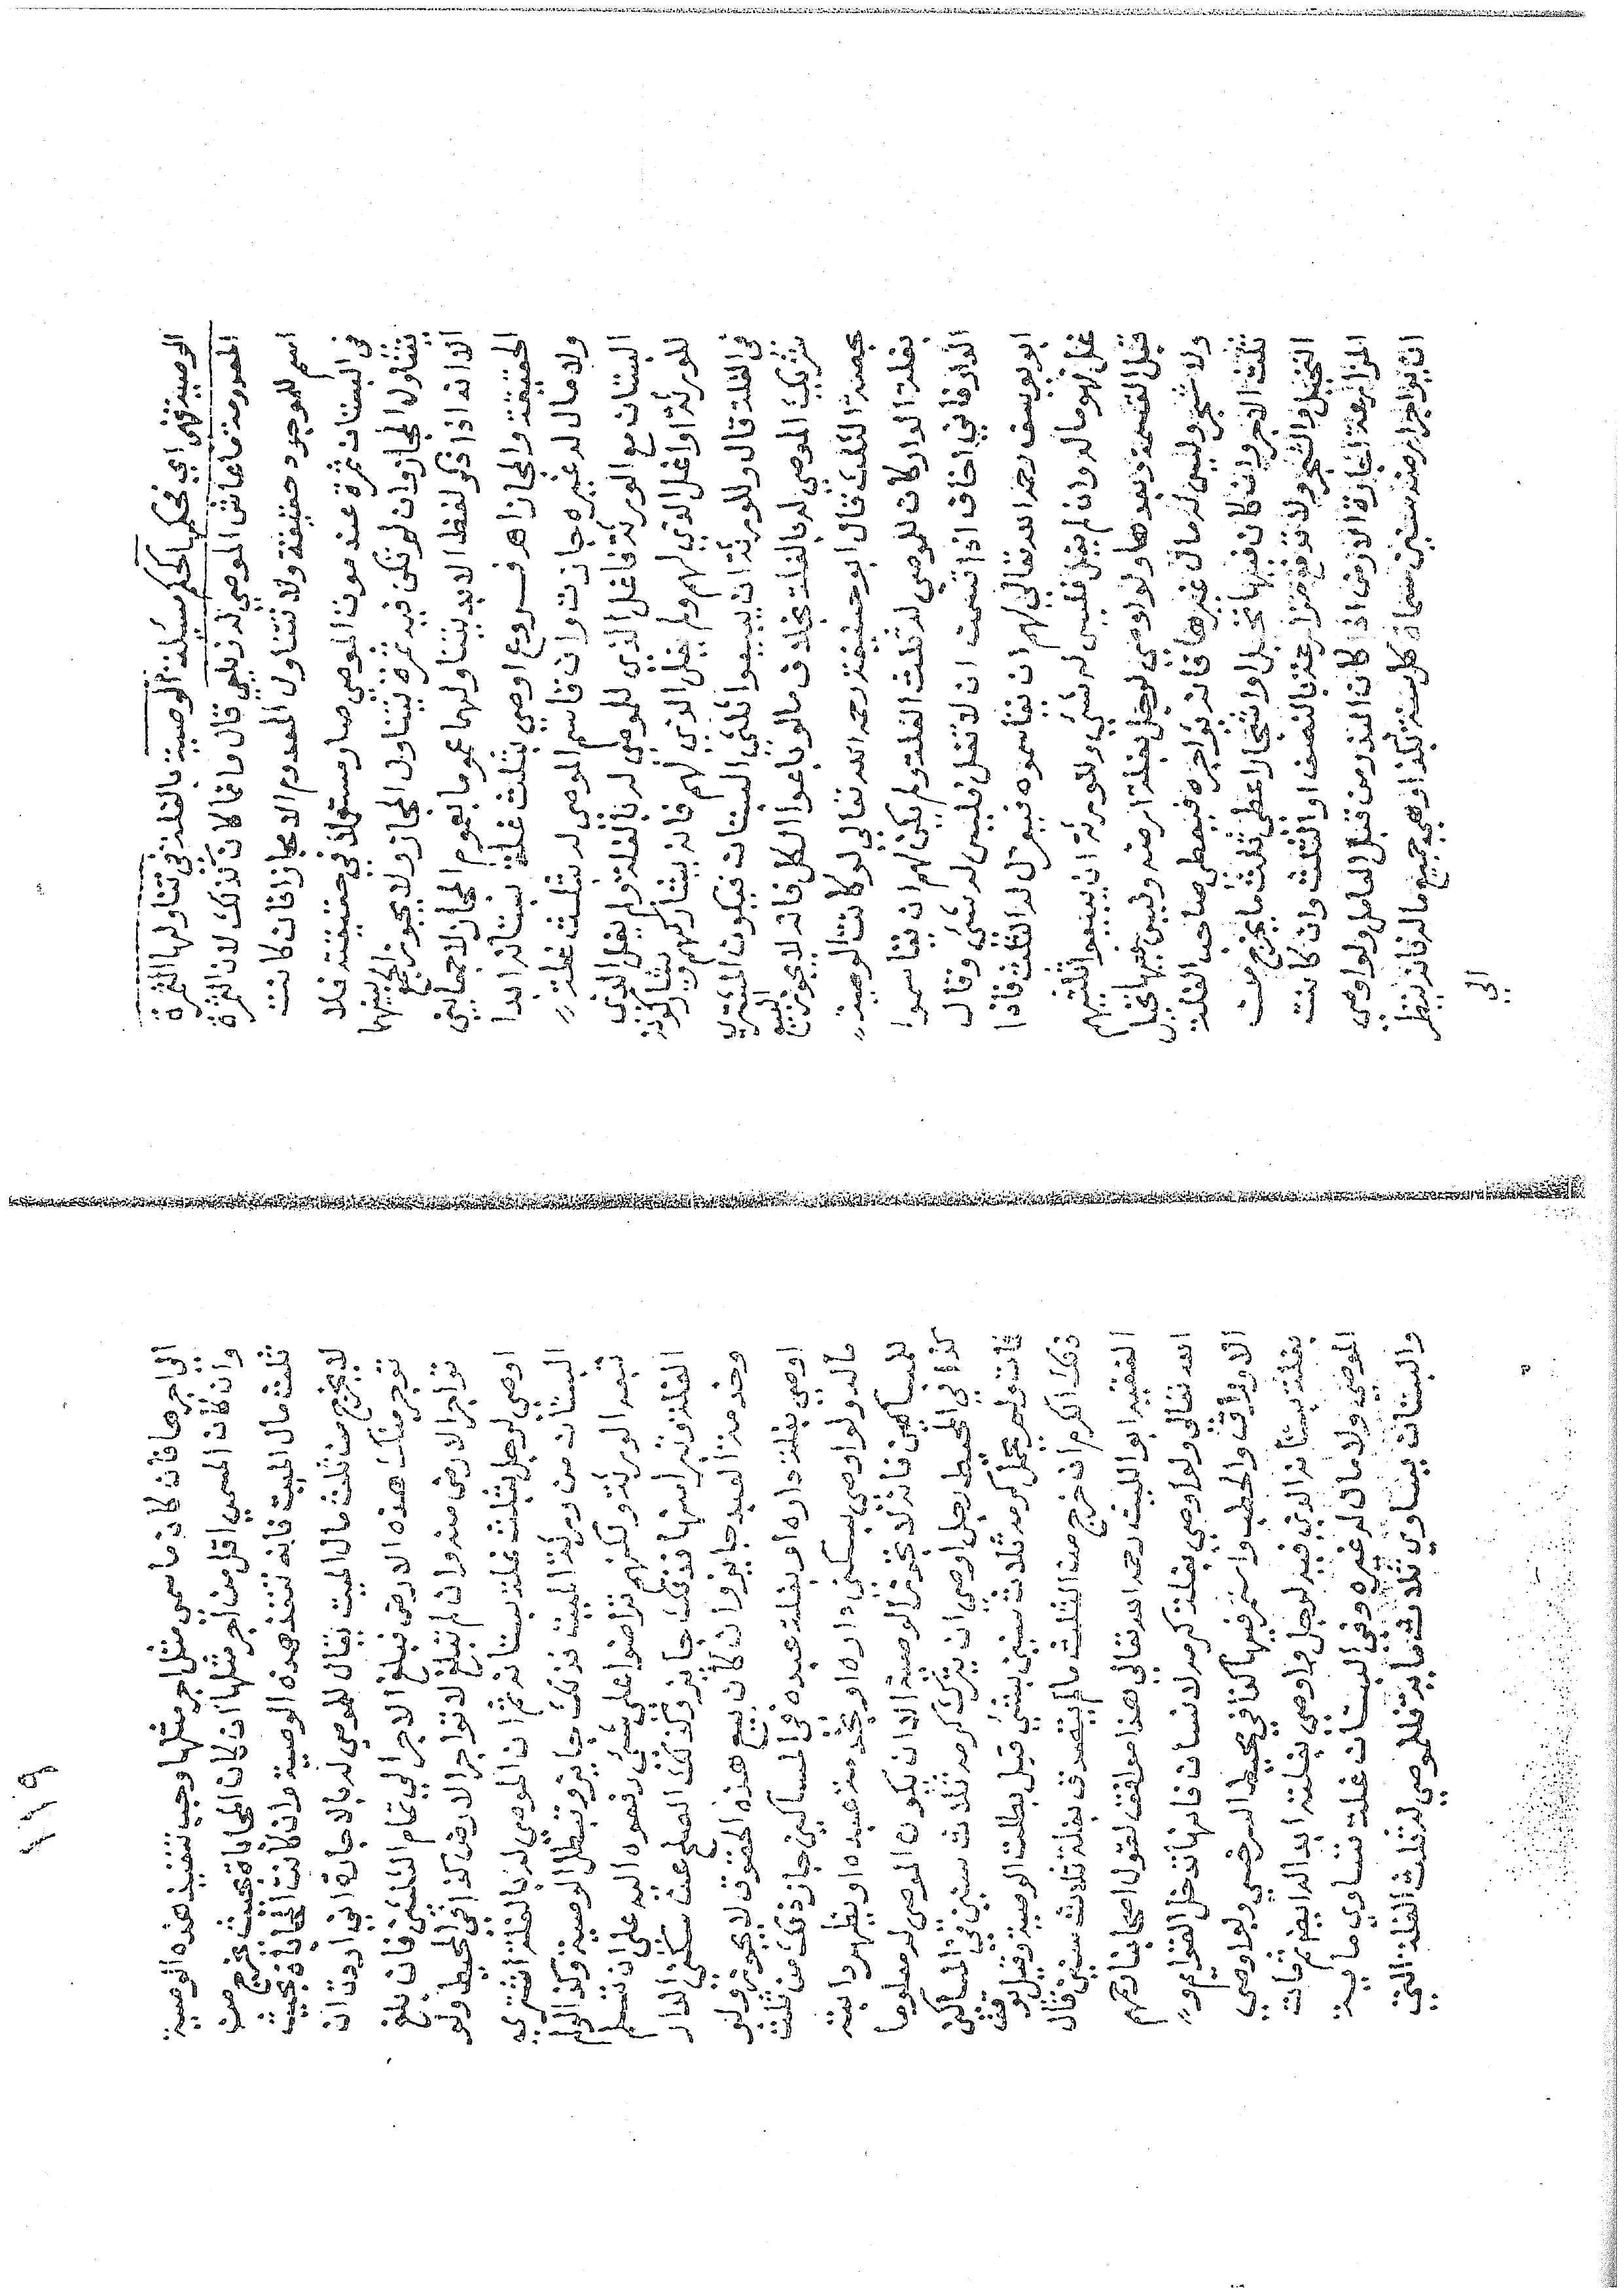 الوصية فهي اي فحكمها كحكم مسئلة الوصية بالغلة في تناولها الثمرة
المعدومة ما عاش الموصي له زيلعي قال وانما كان كذلك لان الثمرة
اسم للموجود حقيقة ولا تتناول المعدوم الا مجازا فان كانت
في البستان ثمرة عند موت الموصي صار مستعملا في حقيقته فلا
تتناول المجاز وان لم تكن فيه ثمرة يتناول المجاز ولا يجوز الجمع بينهما
الا انه اذا ذكر لفظ الابد يتناولهما عموما بعموم المجاز لا جمعا بين
الحقيقة والمجاز اهـ فروع اوصى بثلث غلة بستانه ابدا
ولا مال له غيره جازت وان قاسم الموصى له ثلث غلة
البستان مع الورثة فاغل الذي للموصى له بالغلة ولم يغل الذي
للورثة او اغل الذي لهم ولم يغل الذي له فانه يشاركهم ويشاركونه
في الغلة قال وللورثة ان يبيعوا ثلثي البستان فيكون المشتري
شريك الموصى له بالغلة بخلاف ما لو باعوا الكل فانه لا يجوز بيع
حصة الثلث قال ابو حنيفة رحمه الله تعالى لو كانت الوصية
بغلة الدار كان للموصى له ثلث الغلة ولم يكن لهم ان يقاسموا
الدار فاني اخاف اذا قسمت ان لا تغل فليس له شئ وقال
ابو يوسف رحمه الله تعالى لهم ان يقاسموه فيعزل له الثلث فاذا
غل فهو ماله وان لم يغل فليس له شئ وللورثة ان يبيعوا ثلثيهم
قبل القسمة وبعدها ولو اوصى لرجل بغلة ارضه وليس فيها نخل
ولا شجر وليس له مال غيرها فانه تؤاجر فيعطى صاحب الغلة
ثلث الاجر وان كان فيها نخل واشجار اعطى ثلث ما يخرج من
النخل والشجر ولا تدفع مزارعة بالنصف او الثلث وان كانت
المزارعة اجارة الارض اذا كان البذر من قبل العامل ولو اوصى
ان يؤاجر ارضه سنين مسماة كل سنة بكذا وهي جميع ماله فانه ينظر
الى
اجرها فان كان ما سمى مثل اجر مثلها وجب تنفيذ هذه الوصية
وان كان المسمى اقل من اجر مثلها ان كان المحاباة بحيث تخرج من
ثلث مال الميت فانه تنفذ هذه الوصية وان كانت المحاباة بحيث
لا تخرج من ثلث مال الميت يقال للموصى له بالاجارة ان اردت ان
تؤجر منك هذه الارض فبلغ الاجر الى تمام الثلثين فان بلغ
تؤاجر الارض منه وان لم تبلغ لا تؤاجر الارض كذا في المحيط ولو
اوصى لرجل بثلث غلة بستانه ثم ان الموصى له بالغلة اشترى
البستان من ورثة الميت فذلك جائز وتبطل الوصية وكذا لو لم
تبعه الورثة ولكنهم تراضوا على شئ دفعوه اليه على ان يسلم
الغلة وتبرأ منها فذلك جائز وكذلك الصلح عن سكنى الدار
وخدمة العبد جائز وان كان بيع هذه الحقوق لا يجوز ولو
اوصى بغلة داره او بغلة عبده في المساكين جاز ذلك من ثلث
ماله ولو اوصى بسكنى داره او بخدمة عبده او بظهر دابته
للمساكين فانه لا تجوز الوصية الا ان يكون الموصى له معلوما
كذا في المحيط رجل اوصى ان يترك كرمه ثلاث سنين للمساكين
فمات ولم يحمل كرمه ثلاث سنين بشئ قيل بطلت الوصية وقيل يوقف
ذلك الكرم ان خرج من الثلث ما لم يتصدق بغلة ثلاث سنين قال
الفقيه ابو الليث رحمه الله تعالى هذا موافق لقول اصحابنا رحمهم
الله تعالى ولو اوصى بغلة كرمه لانسان فانها تدخل القوائم و
الاوراق والحطب والثمر فيها كذا في محيط السرخسي ولو اوصى
بغلة بستانه الذي فيه لرجل واوصى بغلته ابدا له ايضا ثم مات
الموصي ولا مال له غيره وفي البستان غلة تساوي مائة
والبستان يساوي ثلاثمائة فللموصى له ثلث الغلة التي